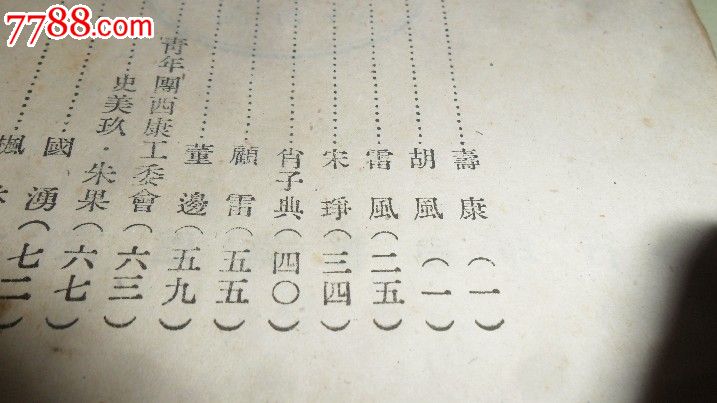 7788.com
壽康(一)
胡風(一)
雷風(二五)
宋琤(三四)
肖子典(四〇)
顧雷(五五)
董邊(五九)
青年團西康工委會(六三)
史美玖·朱果(六七)
國湧(七二)
楓